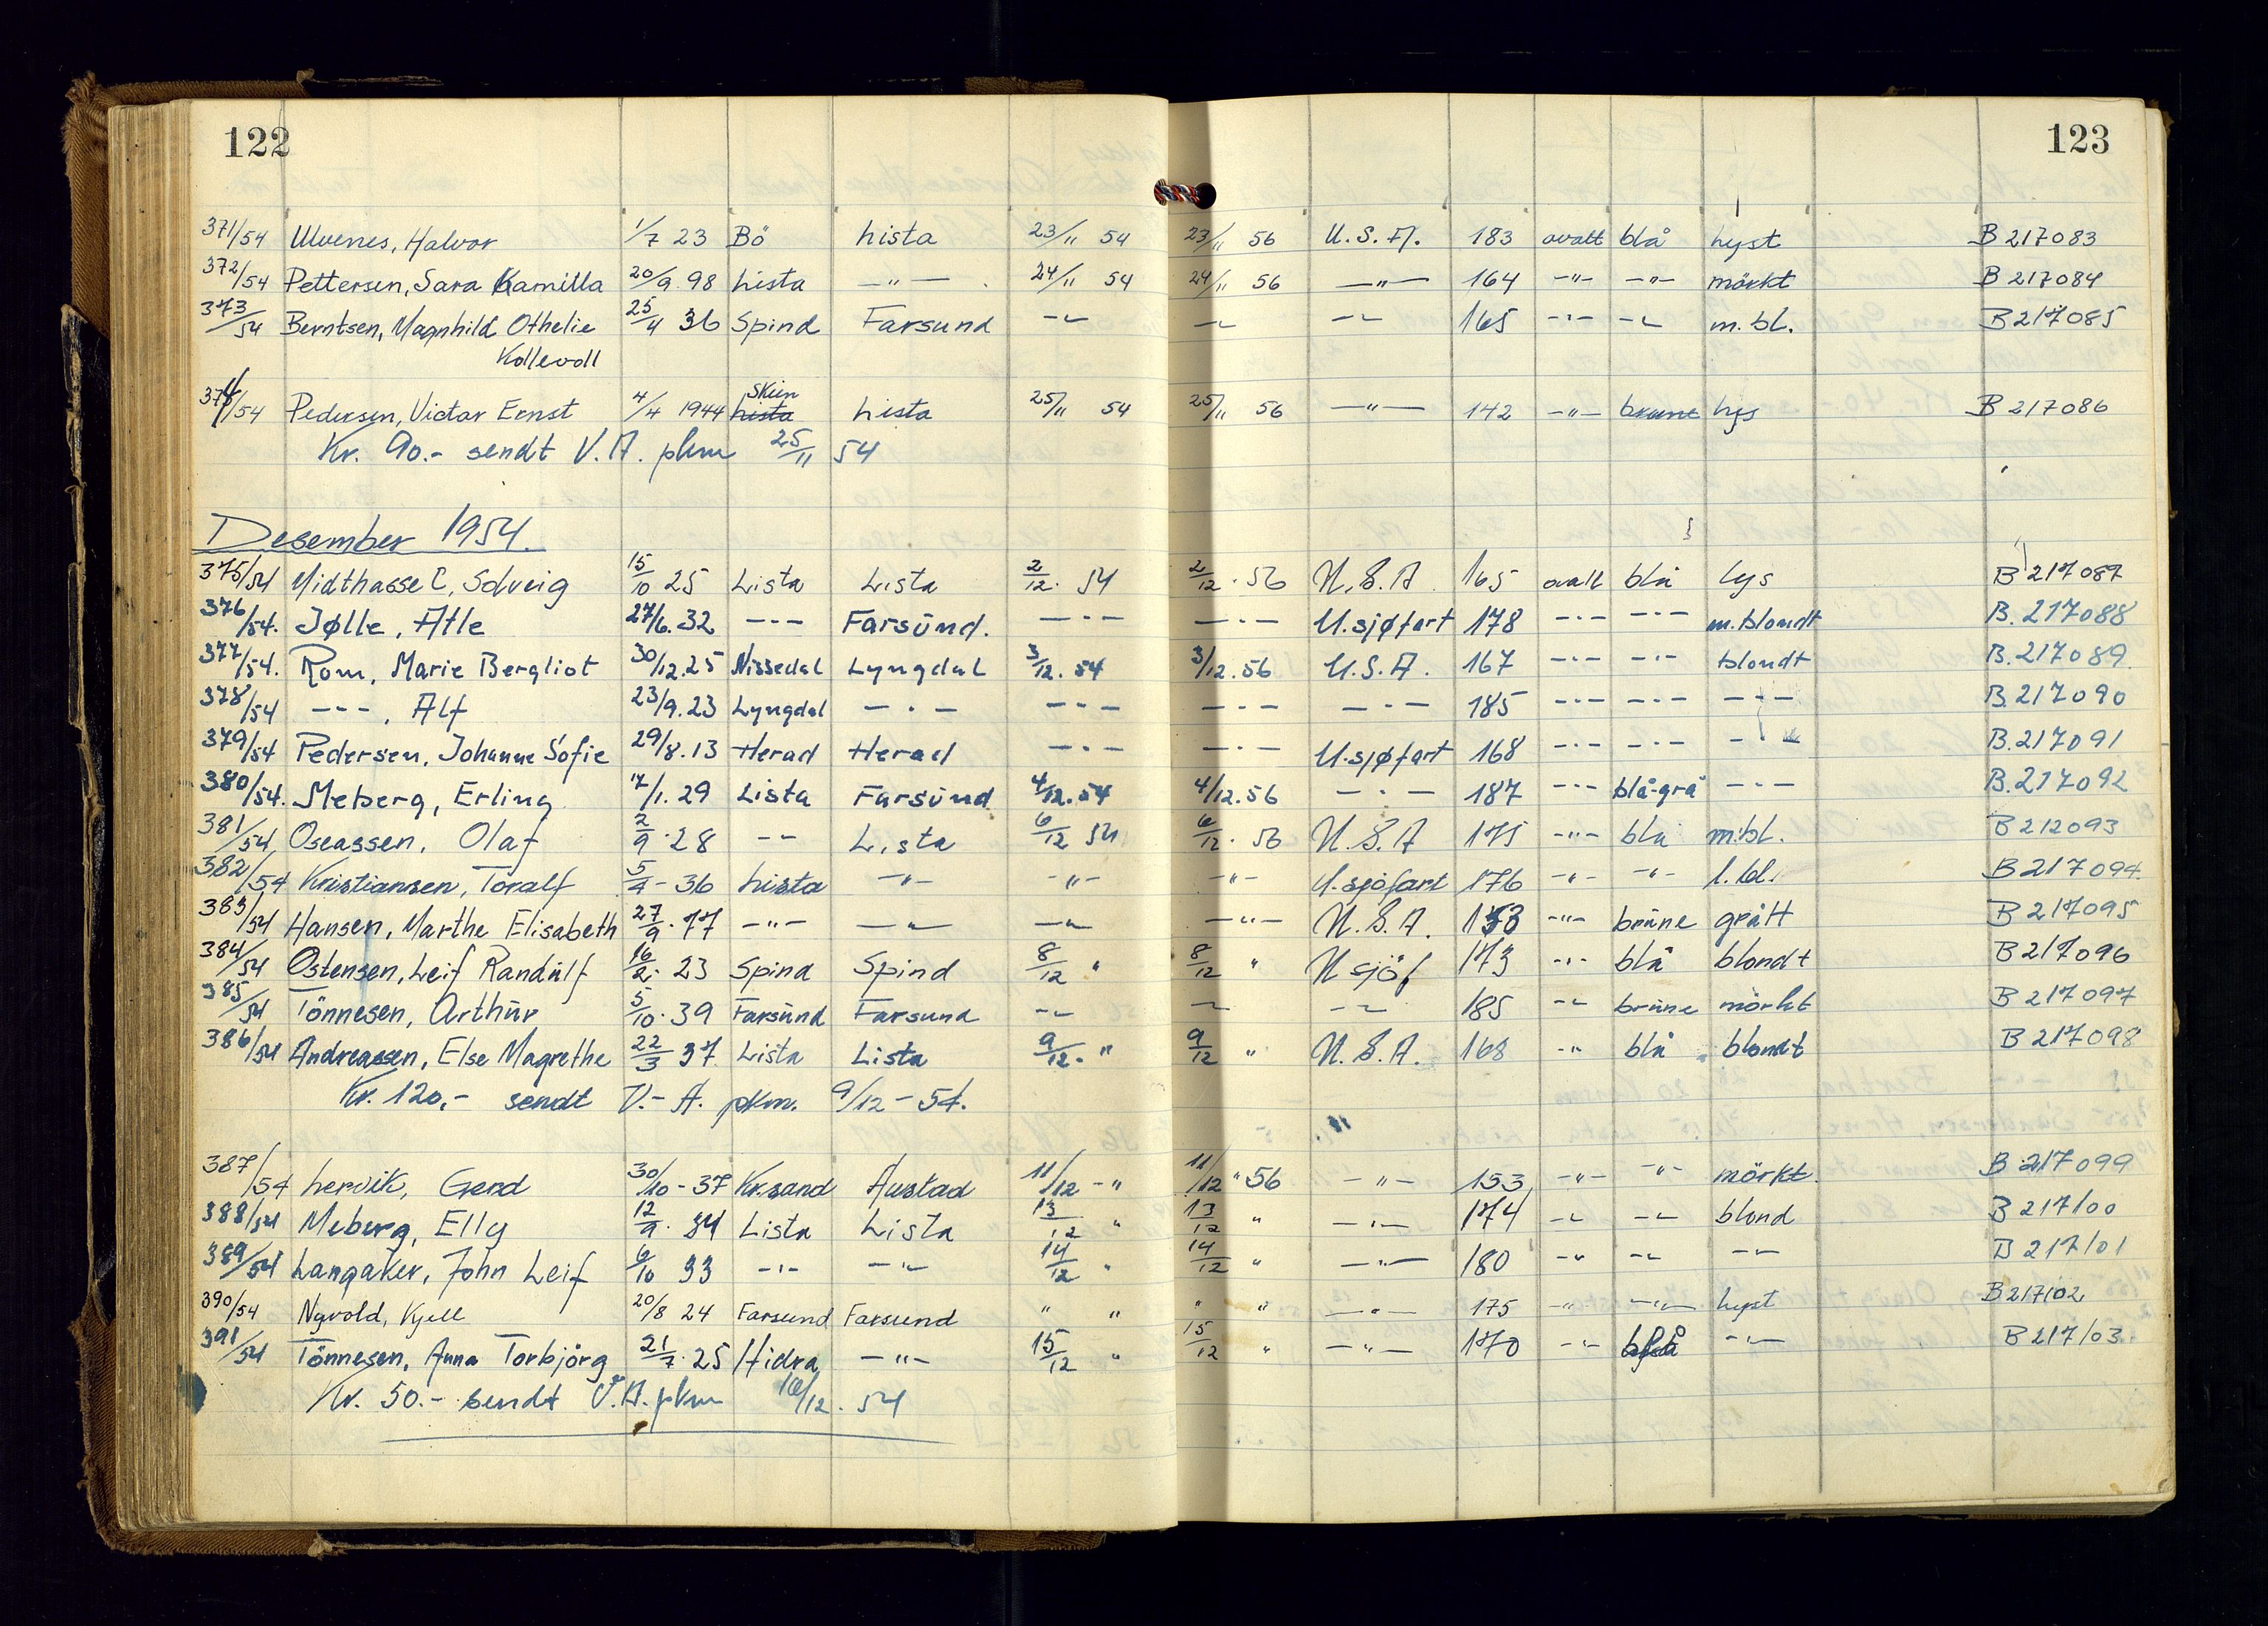 122
123
371/54 Ulvenes, Halvor 1/7 23 Bö Lista 23/11 54 23/11 56 U.S.A. 183 ovalt blå lyst B 217083
372/54 Pettersen, Sara Kamilla 20/9.98 Lista —"— 24/11 54 24/11 56 —"— 164 -"- -"- mörkt B 217084
373/54 Berntsen, Magnhild Othelie 25/4 36 Spind Farsund -"- -"- -"- 165 -"- -"- m.bl. B 217085
Kollevoll
374/54 Pedersen, Victor Ernst 4/4 1944 Lista Skien Lista 25/11 54 25/11 56 —"— 142 -"- brune lys B 217086
Kr. 90.- sendt V.A. pkm 25/11 54
Desember 1954.
375/54 Midthassel, Solveig 15/10 25 Lista Lista 2/12. 54 2/12. 56 U.S.A. 165 ovalt blå lys B 217087
376/54. Jølle, Atle 27/6.32 -"- Farsund. -"- -"- U.sjøfart 178 -"- -"- m.blondt B. 217088
377/54. Rom, Marie Bergliot 30/12.25 Nissedal Lyngdal 3/12. 54 3/12. 56 U.S.A. 167 -"- -"- blondt B. 217089.
378/54 -"-, Alf 23/9.23 Lyngdal -"- -"- -"- -"- 185 -"- -"- -"- B. 217090
379/54 Pedersen, Johanne Sofie 29/8.13 Herad Herad -"- -"- U.sjøfart 168 -"- -"- -"- B. 217091
380/54. Meberg, Erling 17/1. 29 Lista Farsund 4/12. 54 4/12. 56 -"- 187 -"- blå-grå -"- B. 217092
381/54 Oseassen, Olaf 2/9. 28 -"- Lista 6/12 54 6/12. 56 U.S.A 175 -"- blå m.bl. B 212093
382/54 Kristiansen, Toralf 5/4 - 36 Lista -"- -"- -"- U.sjöfart 176 -"- -"- l.bl. B 217094.
383/54 Hansen, Marthe Elisabeth 27/9. 77 -"- -"- -"- -"- U.S.A. 153 -"- brune grått B 217095
384/54 Ostensen, Leif Randulf 16/2. 23 Spind Spind 8/12 " 8/12 " U sjöf 173 -"- blå blondt B 217096
385/54 Tönnesen, Arthur 5/10. 39 Farsund Farsund -"- -"- -"- 185 -"- brune mörkt B 217097
386/54 Andreassen, Else Magrethe 22/3 37 Lista Lista 9/12. " 9/12 " U.S.A. 168 -"- blå blondt B 217098
Kr. 120,- sendt V.-A. pkm. 9/12 - 54.
387/54 Lervik, Gerd 30/10 - 37 Kr.sand Austad 11/12 - " 11/12 " 56 -"- 153 -"- -"- mörkt. B 217099
388/54 Meberg, Elly 12/9. 34 Lista Lista 13/12 " 13/12 " -"- 174 -"- -"- blond B 217100
389/54 Langaker, John Leif 6/10 33 -"- -"- 14/12 " 14/12 " -"- 180 -"- -"- -"- B 217101
390/54 Nyvold, Kjell 20/8 24 Farsund Farsund " " " " -"- 175 -"- -"- lyst B 217102
391/54 Tönnesen, Anna Torbjörg 21/7. 25 Hidra -"- 15/12 " 15/12 " -"- 170 -"- blå -"- B 217103.
Kr. 50.- sendt V.A. pkm 16/12. 54